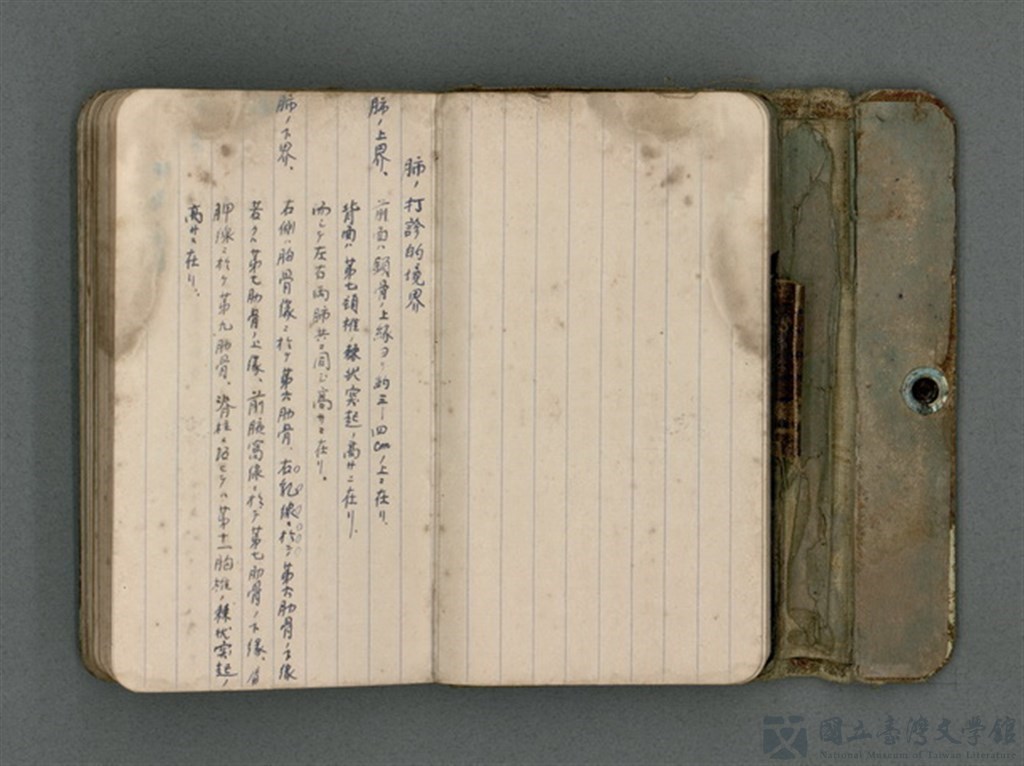 肺ノ打診的境界
肺ノ上界、前面ハ鎖骨ノ上縁ヨリ約三―四cmノ上ニ在リ、
背面ハ第七頸椎ノ棘状突起ノ高サニ在リ、
而シテ左右両肺共ニ同ジ高サニ在リ。
肺ノ下界、右側ハ胸骨縁ニ於テ第六肋骨、右乳線ニ於テ第六肋骨ノ下縁
若クハ第七肋骨ノ上縁、前腋窩線ニ於テ第七肋骨ノ下縁、肩
胛線ニ於テ第九肋骨、脊柱ニ沿ヒテハ第十一胸椎ノ棘状突起ノ
高サニ在リ、
國立臺灣文學館
National Museum of Taiwan Literature